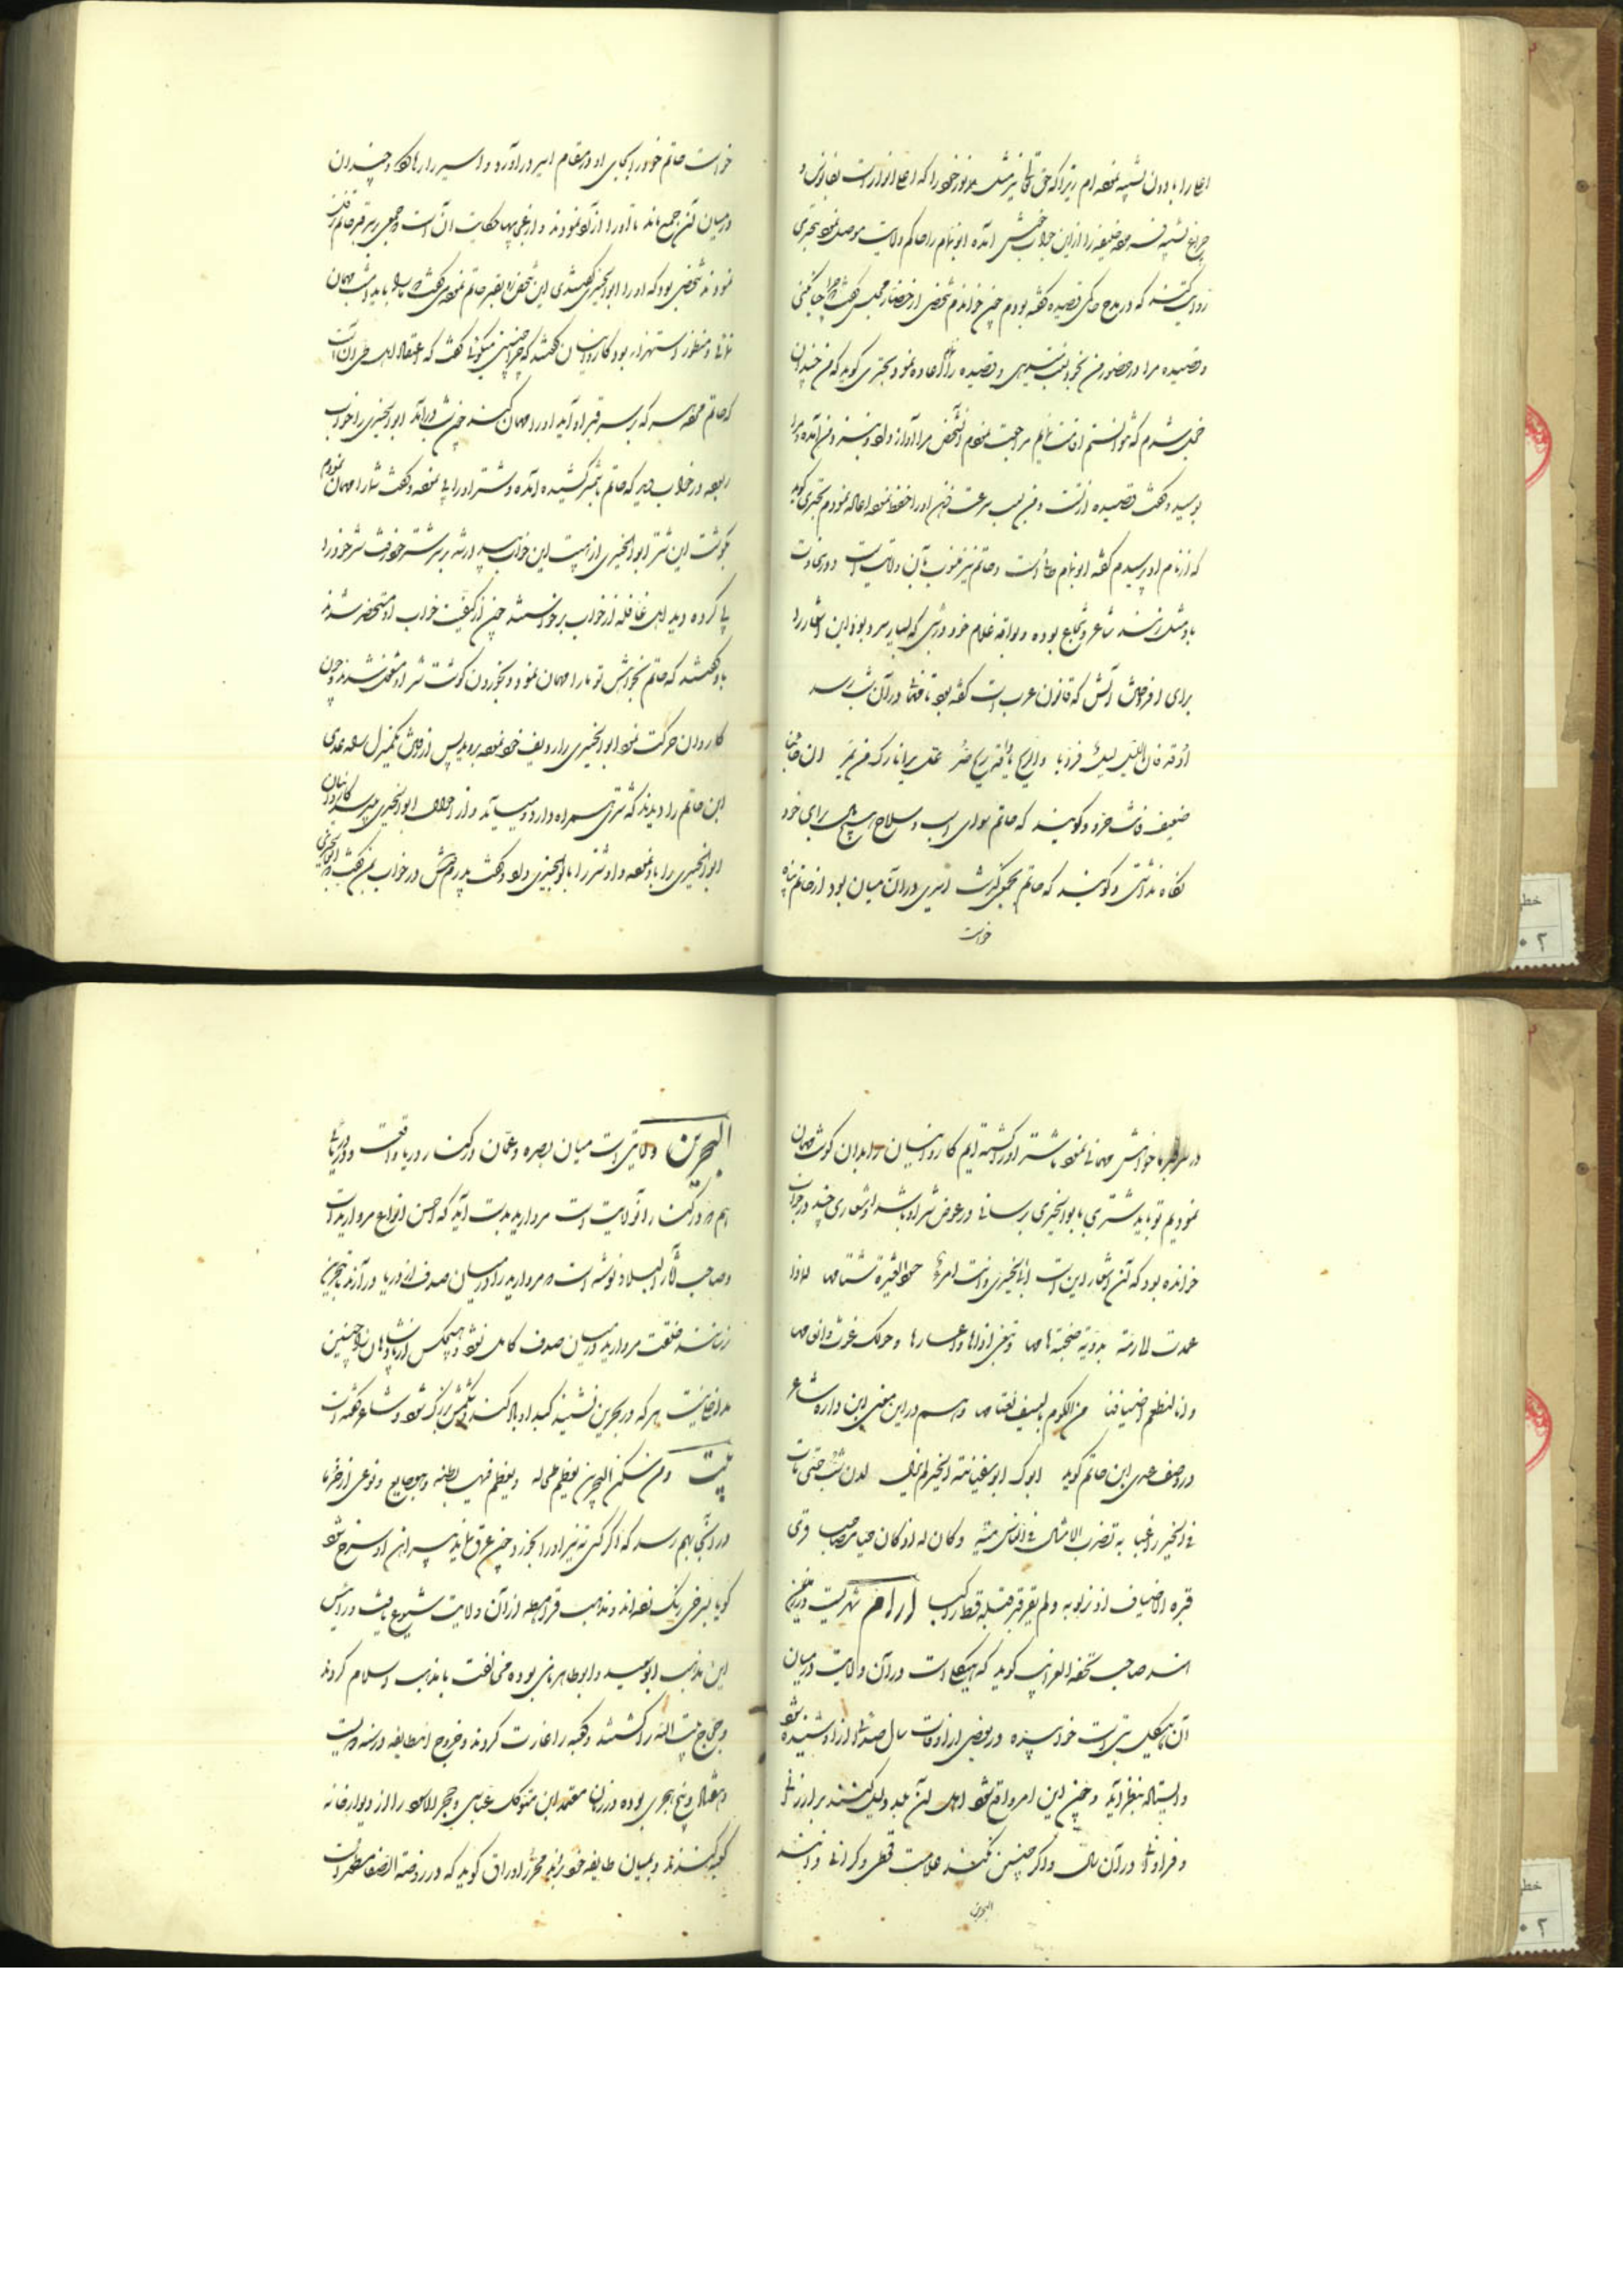 اعلا را بادون تشبیه نموده ام زیرا که حق تعالی نیز مثل بر نور خود را که اعلا انوار است بفانوس و
چراغ تشبیه فرموده خلیفه را از این جواب خوش آمده ابوتمام را حاکم ولایت موصل نمود بحتری
روایت کند که در مدح حاکمی قصیده گفته بودم چون خواندم شخصی از حضار مجلس گفت چرا حیا نمیکنی
و قصیده مرا در حضور من بخود نسبت میدهی و قصیده را اعاده نمود بحتری گوید که من چندان
خجل شدم که نتوانستم اقامت نمایم مراجعت نمودم آن شخص مرا آواز داد و نزد من آمده مرا
بوسید و گفت قصیده از تست و من بسبب سرعت ذهن او را حفظ نموده اعاده نمودم بحتری گوید
که از نام او پرسیدم گفت ابوتمام طائی است و حاتم نیز منسوب بآن ولایت است و در سخاوت
باو مثل زنند شاعر و شجاع بوده و بواقد غلام خود در شبی که بسیار سرد بود این اشعار را
برای افروختن آتش که قانون عرب است گفته بود تا مهمان در آن شب برسد
اوقد فان اللیل لیل قر والریح یا واقد ریح صر عسی یری نارک من یمر ان جلبت
ضیفا فانت حر و گویند که حاتم سوای اسب و سلاح هیچ برای خود
نگاه نداشتی و گویند که حاتم بجمعی گذشت اسیری در آن میان بود از حاتم پناه
خواست
خواست حاتم خود را بجای او در مقام اسیر درآورد و اسیر را رها کرد و چندان
در میان آن جمع ماند تا او را آزاد نمودند و از غریبها حکایت آن است که جمعی بر سر قبر حاتم رفت
نمودند شخصی بود که او را ابوالخیبری گفتندی این شخص رو بقبر حاتم نموده گفت ما را باید امشب مهمان
نمائی و منظور استهزاء بود کاروانیان گفتند که چرا چنین میگوئی گفت که اعتقاد اهل طی آن است
که حاتم هر کس که بر سر قبر او آید او را مهمان کند چون شب درآمد ابوالخیبری را خواب
ربوده در خواب دید که حاتم شمشیر کشیده آمده و شتر او را پی نموده و گفت شما را مهمان نمودم
بگوشت این شتر ابوالخیبری از هیبت این خواب بیدار شده بر سر شتر خود رفت شتر خود را
پی کرده دید اهل قافله از خواب برخواستند چون از کیفیت خواب او مستحضر شدند
باو گفتند که حاتم بخواهش تو ما را مهمان نمود و بخوردن گوشت شتر او مشغول شدند و چون
کاروان حرکت نمود ابوالخیبری را ردیف خود نموده بردند پس از رفتن یکمنزل راه عدی
ابن حاتم را دیدند که شتری همراه دارد و میآید و از احوال ابوالخیبری میپرسد کاروانیان
ابوالخیبری را باو نموده و او شتر را بابوالخیبری داد و گفت پدرم دوش در خواب بمن گفت که ابوالخیبری
در سر قبر ما خواهش مهمانی نمود ما شتر او را کشته ایم کاروانیان را بدان گوشت مهمان
نمودیم تو باید شتری بابوالخیبری برسانی در عوض شتر او باشد و اشعاری چند در جواب
خوانده بود که آن اشعار این است ابا الخیبری وانت امرء حسود العشیرة شتامها لماذا
عمدت لارمة بدویة صخبة هامها و تبغی اذاها و اعسارها و حولک غوث و انعامها
و انا لنطعم اضیافنا من الکوم بالسیف نعتامها و هم در این معنی ابن داره شاعر
در وصف عدی ابن حاتم گوید ابوک ابو سفانة الخیر لم یزل لدن شب حتی مات
فی الخیر راغبا به تضرب الامثال فی الناس میتا و کان له اذ کان حیا مصاحبا قری
قبره الاضیاف اذ نزلوا به و لم یقر قبر قبله قط راکبا ارام شهریست در زمین
هند صاحب تحفة الغرایب گوید که هیکلی است در آن ولایت در میان
آن هیکل بتی است خوابیده در بعضی از اوقات سال صدائی از او شنیده شود
و ایستاده بنظر آید و چون این امر واقع شود اهل آن بلد دلیل کنند بر ارزانی
و فراوانی در آن سال و اگر چنین نکند علامت قحطی و گرانی دانند
البحرین
البحرین ولایتی است میان بصره و عمان و در کنار دریا واقعست و در دریای
هم که در کنار آن ولایت است مروارید بدست آید که احسن انواع مروارید است
و صاحب آثار البلاد نوشته است که مروارید را در میان صدف از دریا درآرند
هر که در بحرین نشیند کبد او بالا کند و شکمش بزرگ شود و شاعر گفته است
بیت و من یسکن البحرین یعظم طحاله و یعظم فیها بطنه و هو جایع و نوعی از خرما
در آنجا بهم رسد که اگر کسی نبیذ او را بخورد چون عرق نماید پیراهن او سرخ شود
گویا بسرخی رنگ نموده اند و مذهب قرامطه از آن ولایت شیوع یافت و رئیس
این مذهب ابوسعید و ابوطاهر نامی بوده مخالفت با مذهب اسلام کردند
و حجاج بیت الله را کشتند و کعبه را غارت کردند و خروج انطایفه در سنه دویست
و هفتاد و پنج هجری بوده در زمان معتمد ابن متوکل عباسی و حجر الاسود را از دیوار خانه
کعبه کندند و بمیان طایفه خود بردند محرر اوراق گوید که در روضة الصفا مسطور است